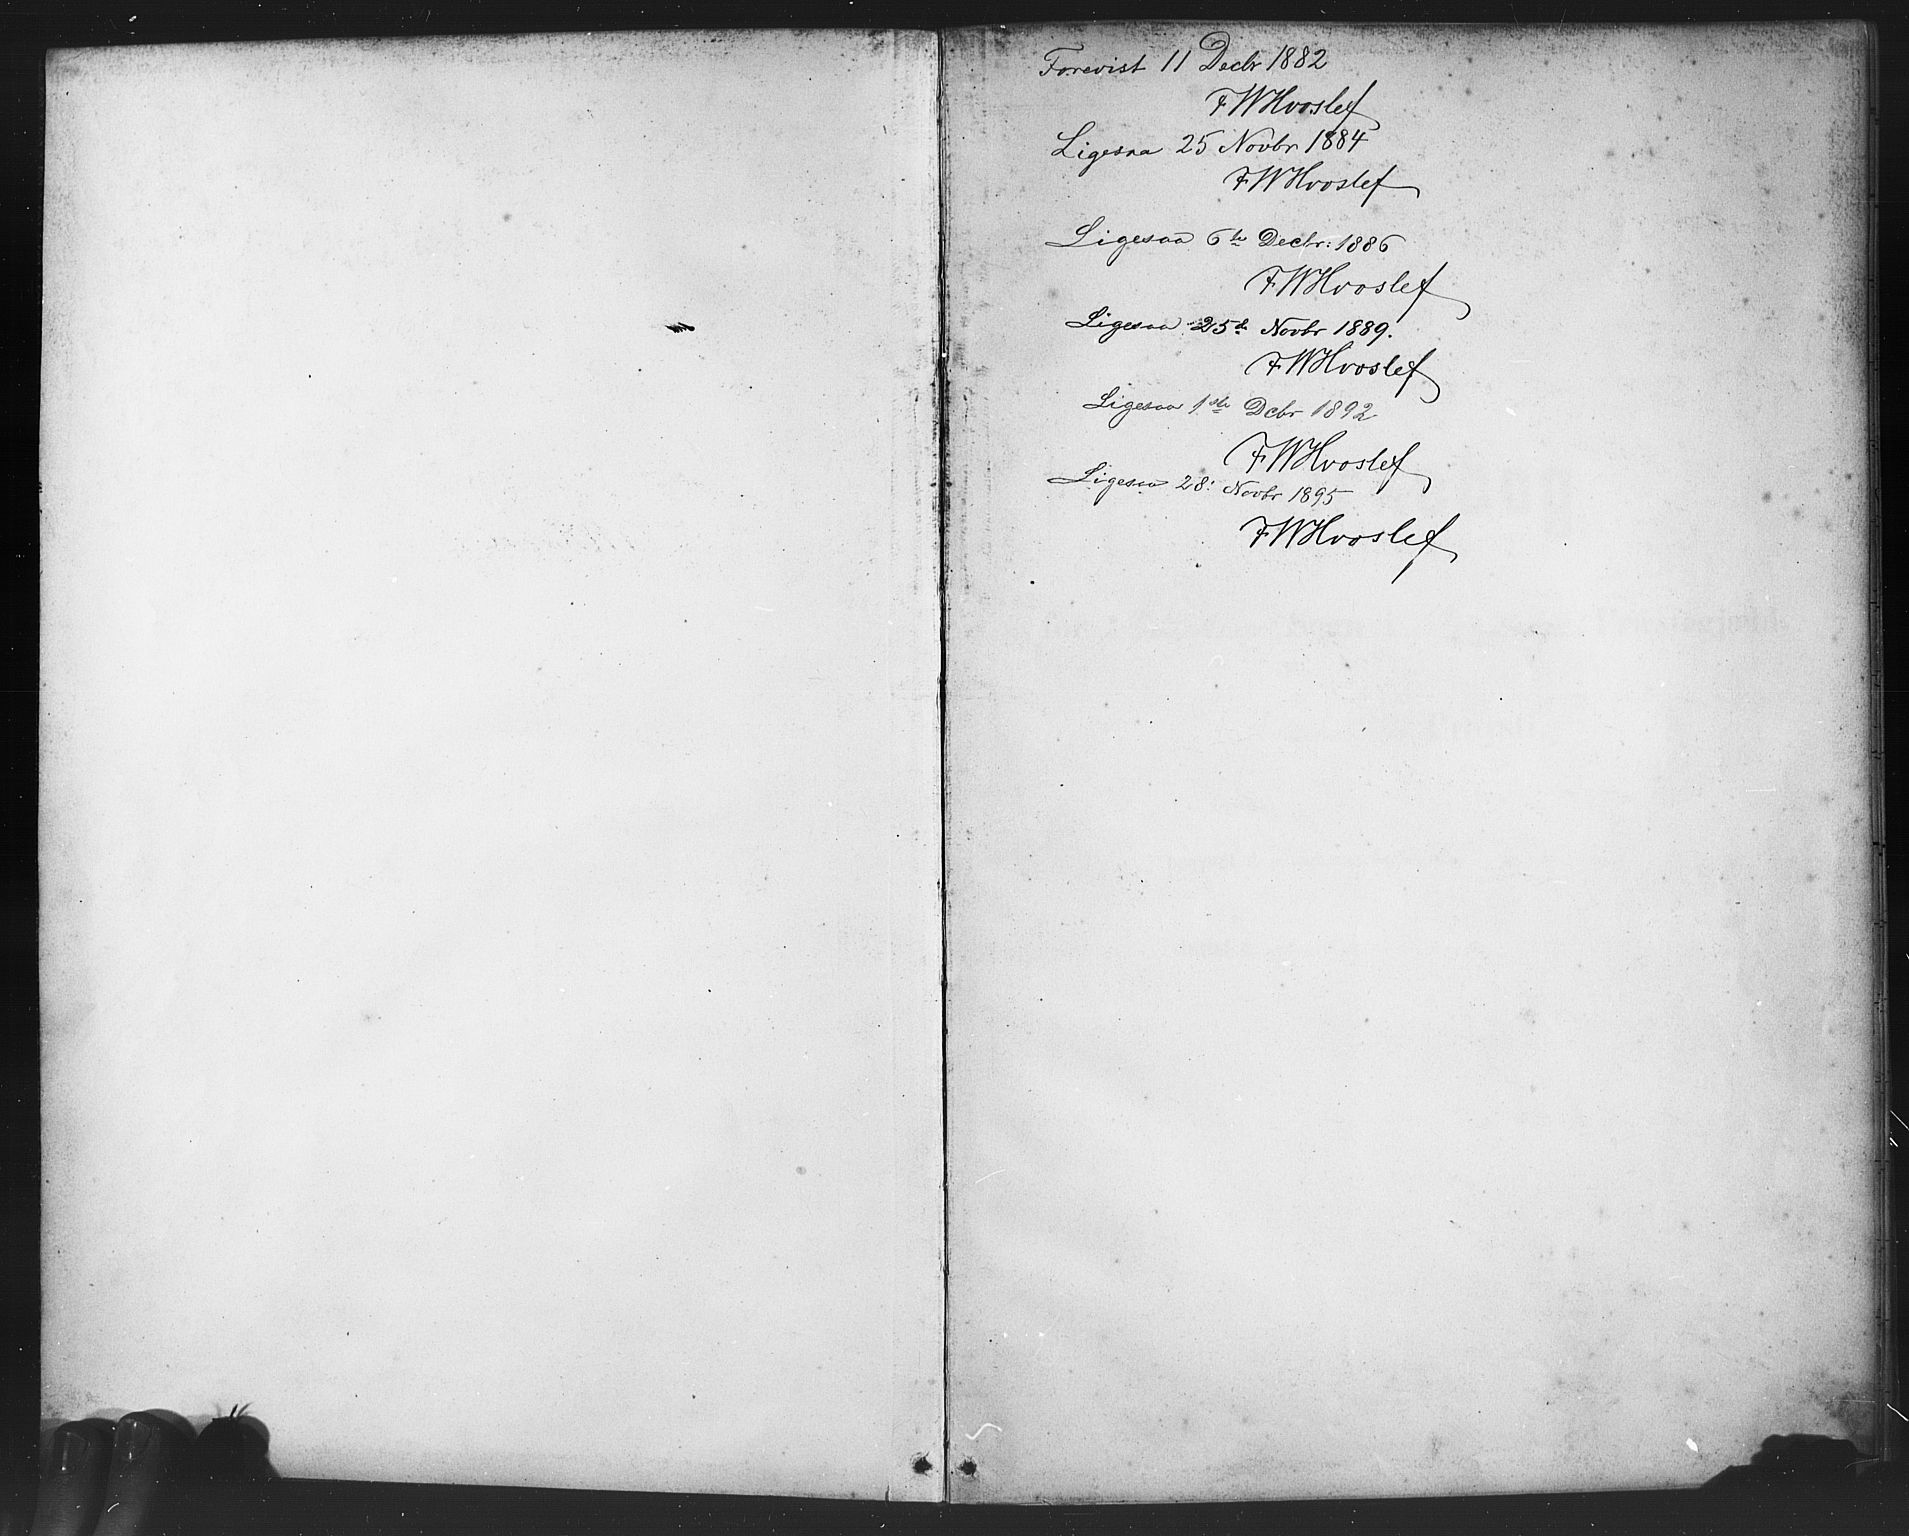 Forevist 11 Decbr 1882
FWHvoslef
Ligesaa 25 Novbr 1884
FWHvoslef
Ligesaa 6te Decbr: 1886
FWHvoslef
Ligesaa 25d Novbr 1889.
FWHvoslef
Ligesaa 1ste Dcbr 1892
FWHvoslef
Ligesaa 28: Novbr 1895
FWHvoslef